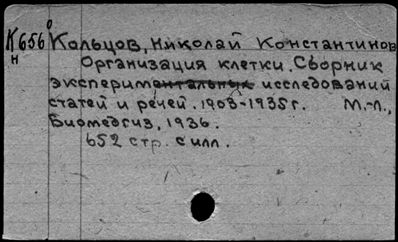 К656
н
Кольцов, Николай Константинов
Организация клетки. Сборник
экспериментальных исследований
статей и речей. 1903-1935г. М.-Л.,
Биомедгиз, 1936.
652 стр. с илл.